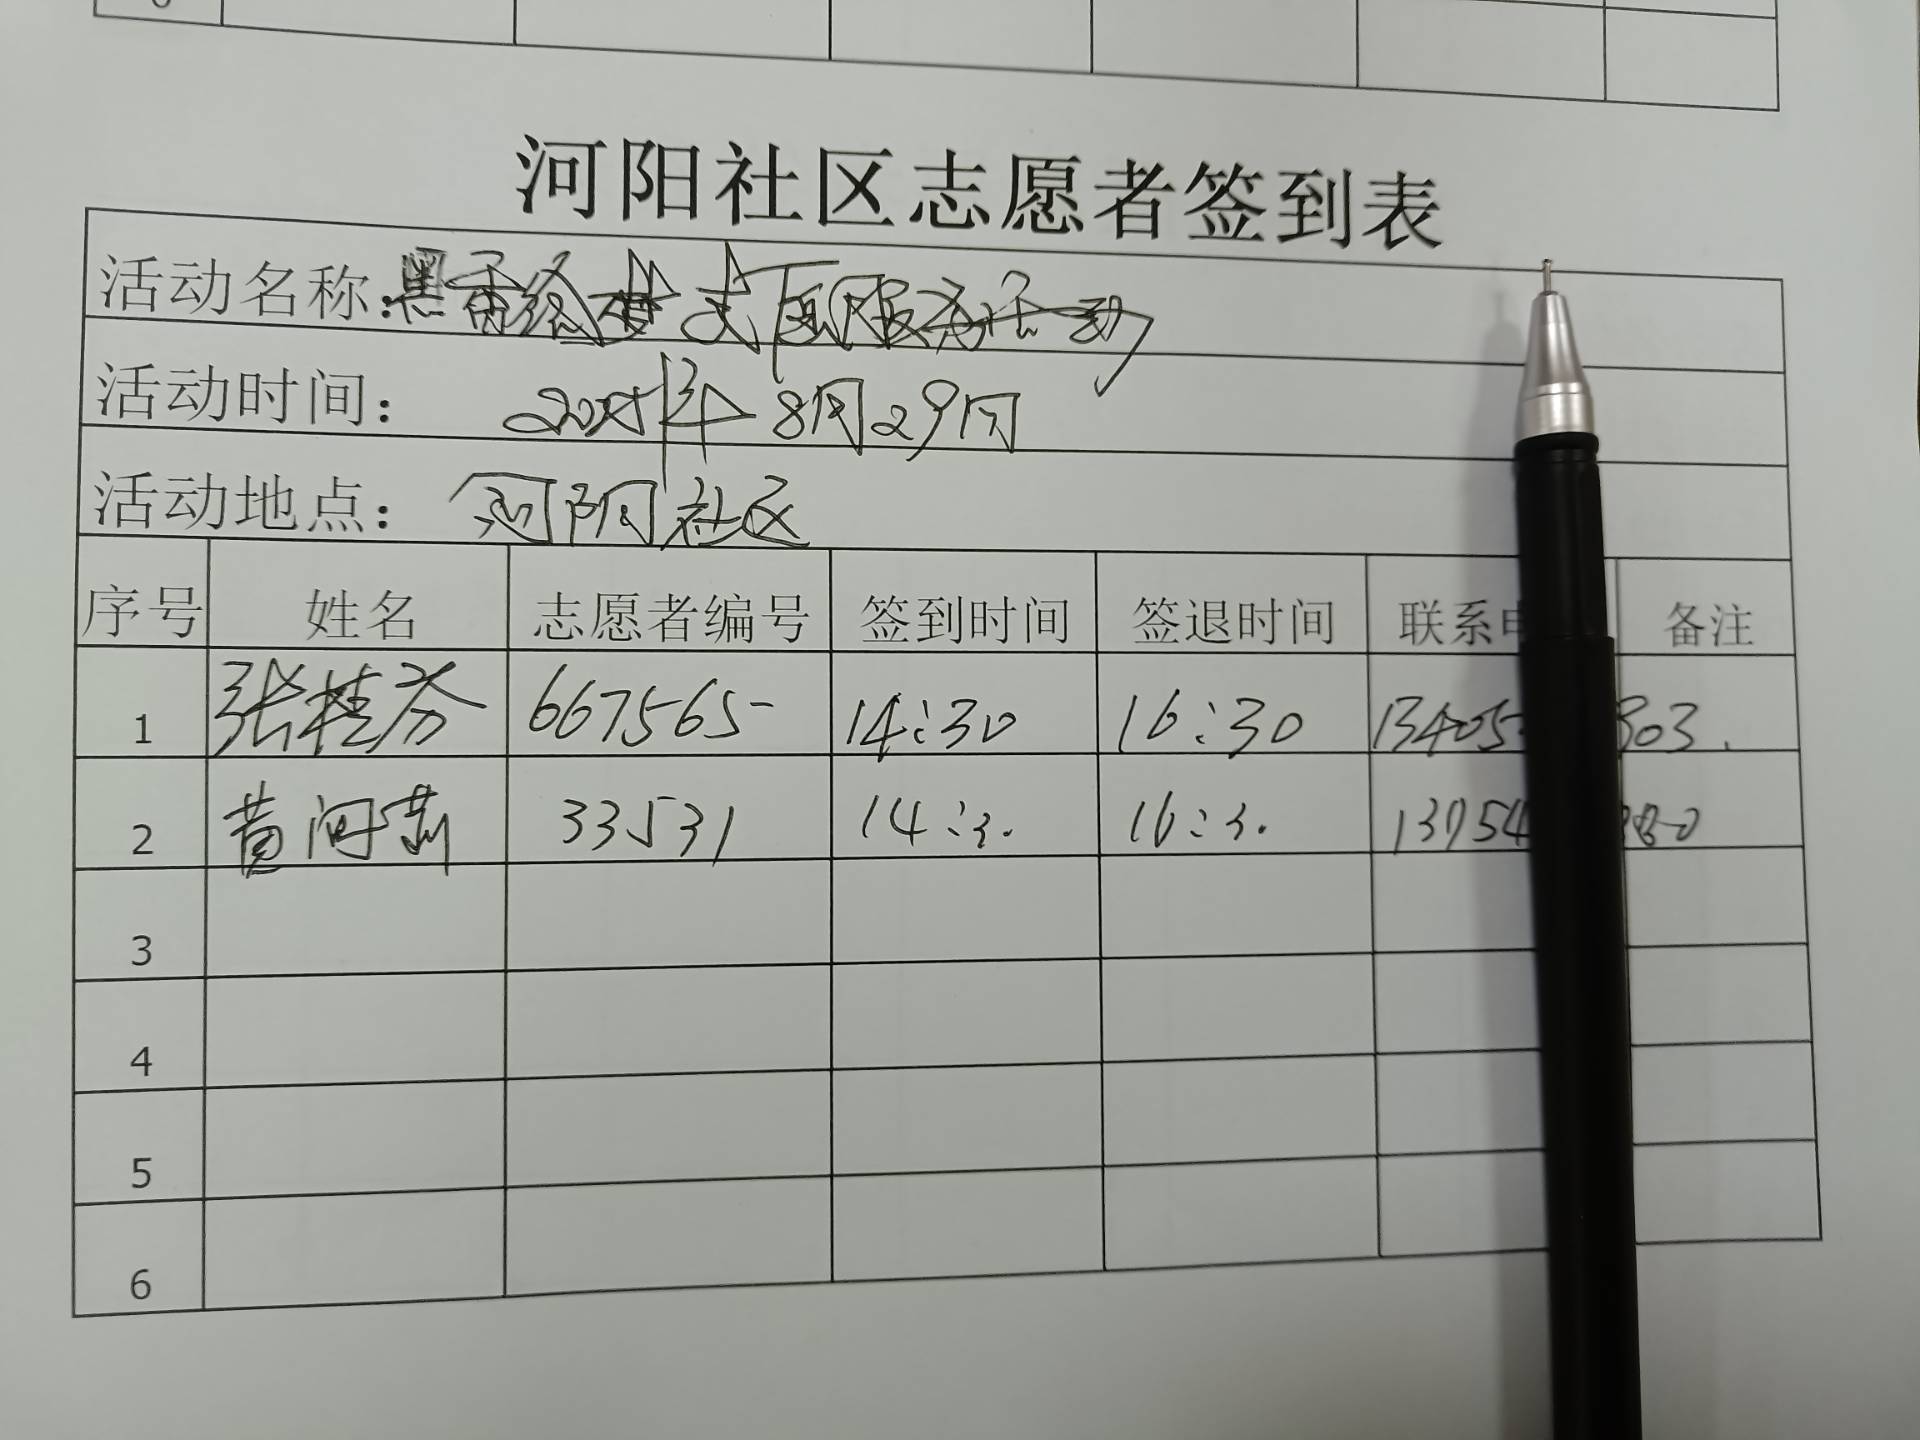 河阳社区志愿者签到表
活动名称: 服务活动
活动时间: 2025年8月29日
活动地点: 河阳社区
序号 姓名 志愿者编号 签到时间 签退时间 联系电 备注
1 张桂芬 667565 14:30 16:30 13405 303.
2 黄 莉 33531 14:3. 16:3. 13954 880
3
4
5
6